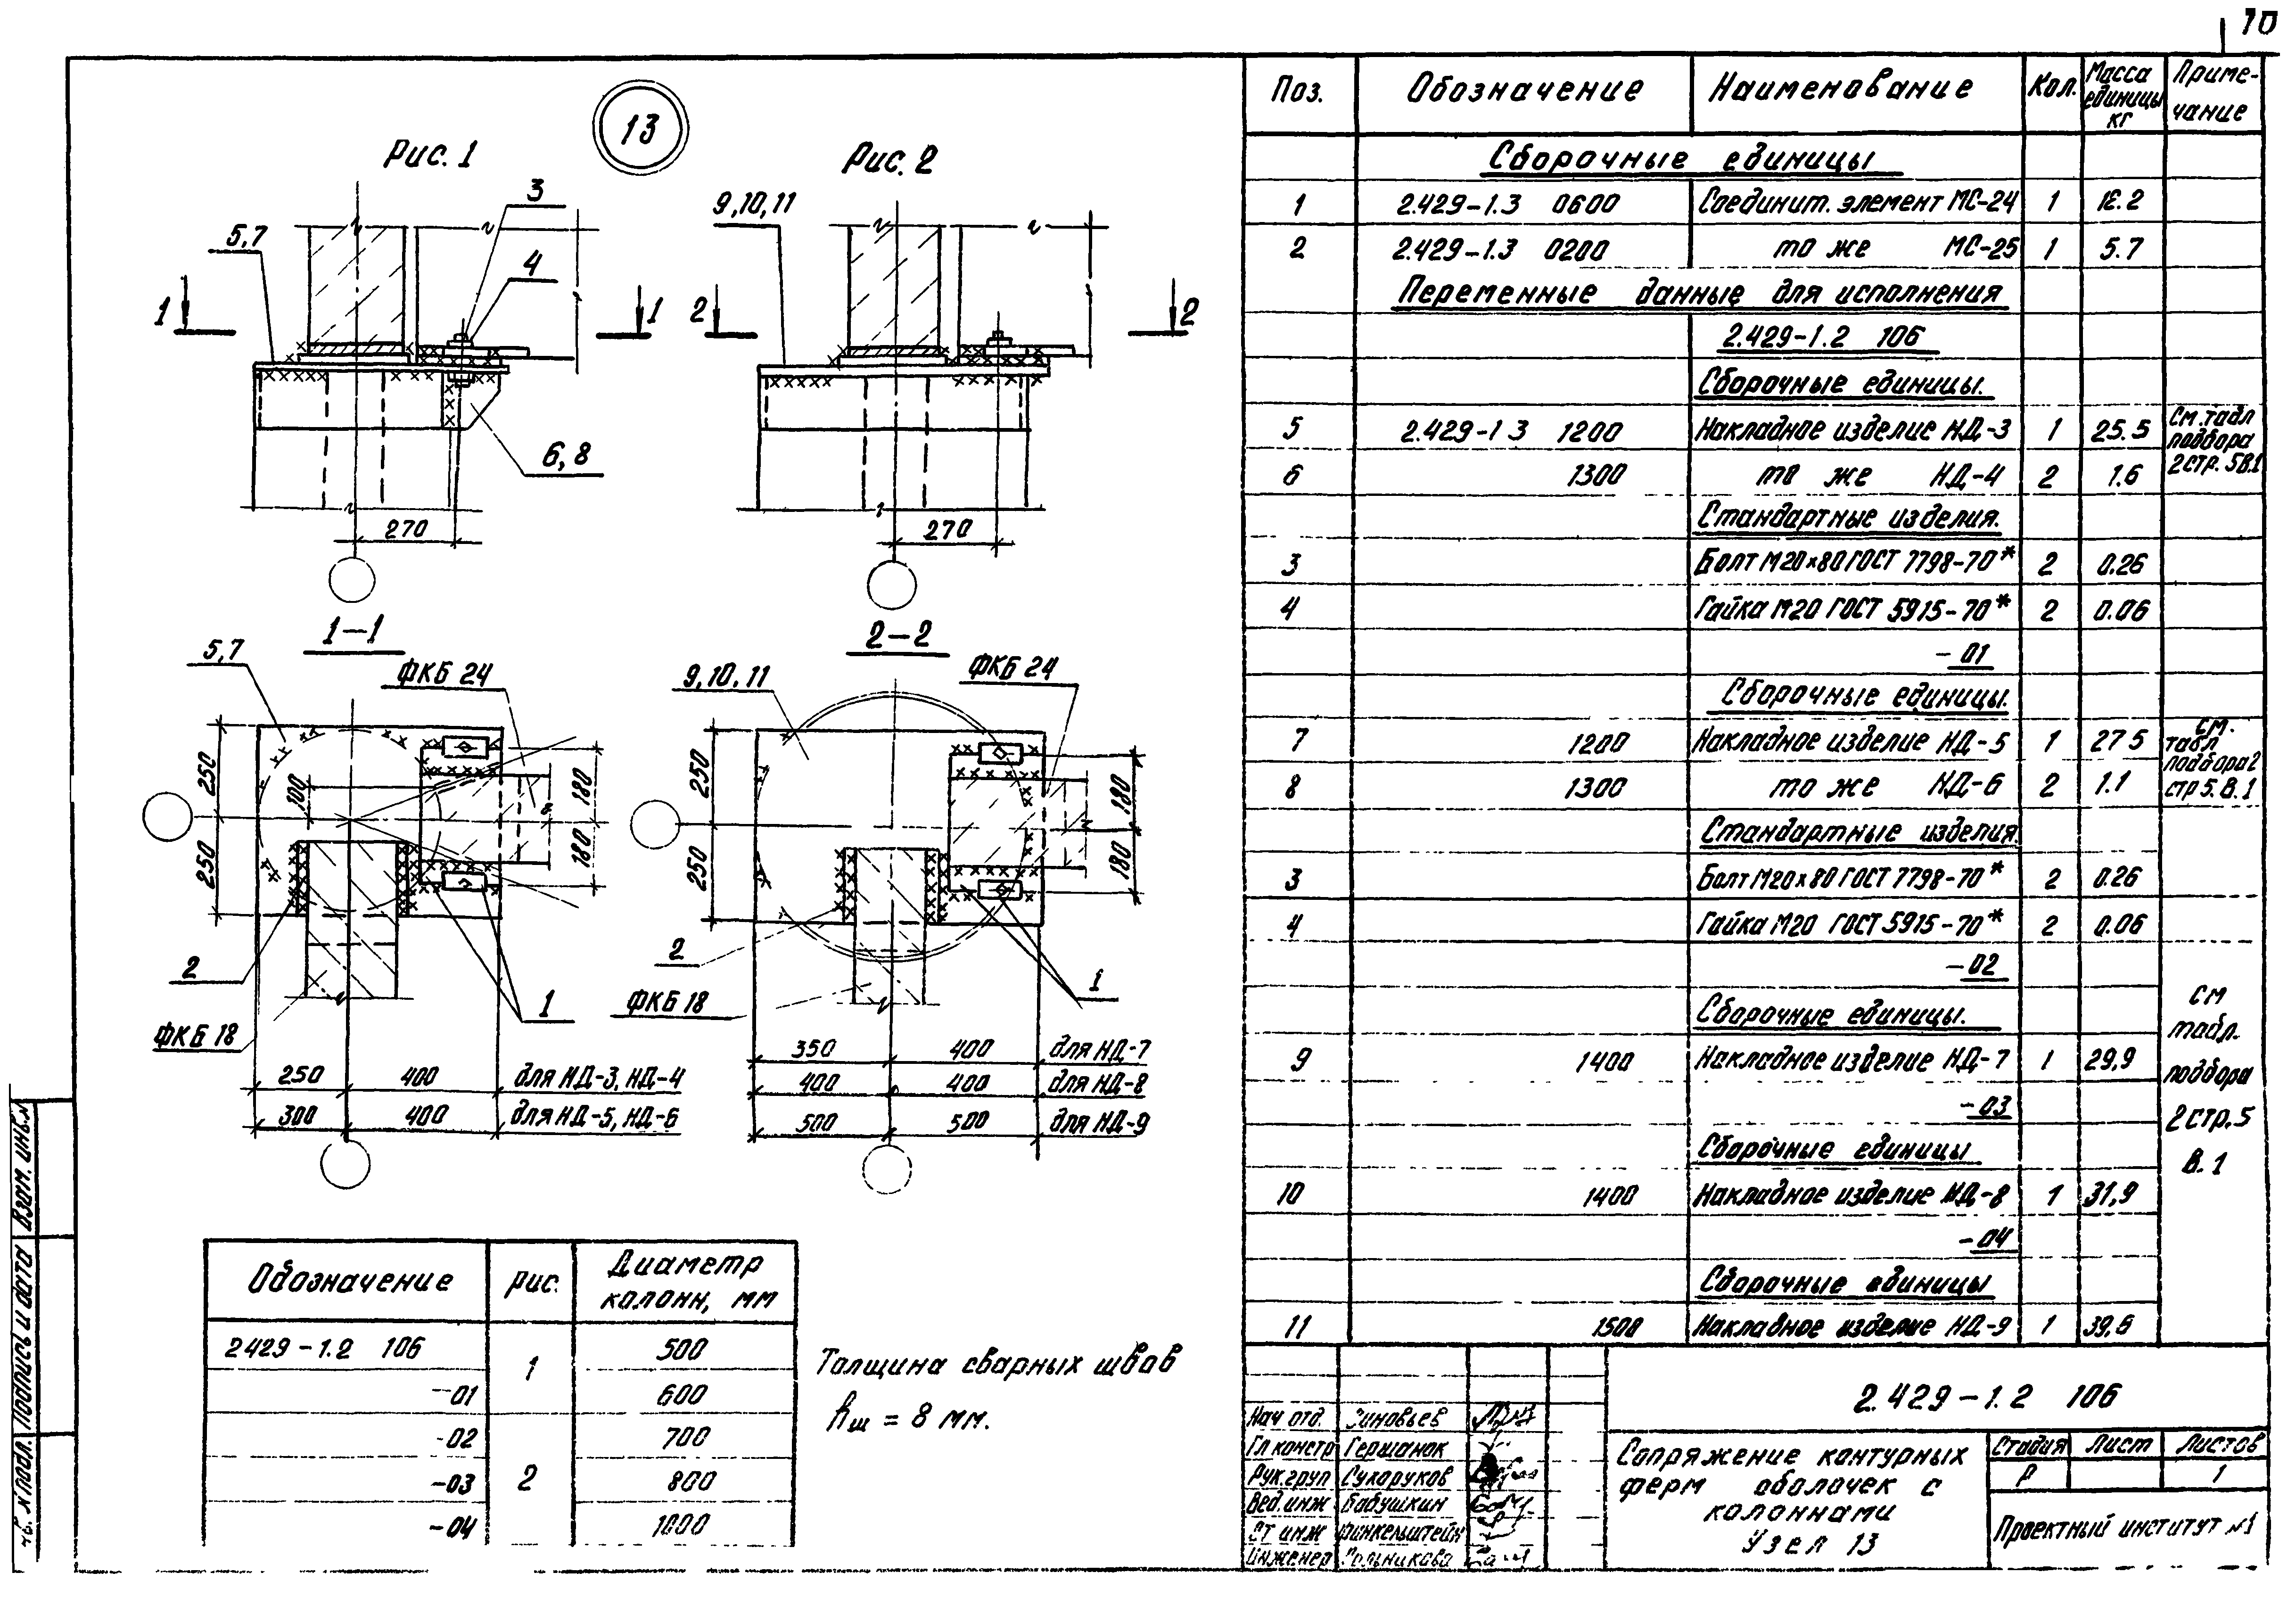 10
13
Рис. 1
Рис. 2
3
4
5,7
1
1
6,8
270
9,10,11
2
2
270
1-1
5,7
ФКБ 24
250
250
100
180
180
2
1
ФКБ 18
250 400 для НД-3, НД-4
300 400 для НД-5, НД-6
2-2
9,10,11
ФКБ 24
250
250
180
180
2
1
ФКБ 18
350 400 для НД-7
400 400 для НД-8
500 500 для НД-9
Обозначение Рис. Диаметр колонн, мм
2429-1.2 106 1 500
-01 600
-02 2 700
-03 800
-04 1000
Толщина сварных швов
hш = 8 мм.
Поз. Обозначение Наименование Кол. Масса единицы кг Приме-чание
Сборочные единицы
1 2.429-1.3 0600 Соединит. элемент МС-24 1 12.2
2 2.429-1.3 0200 то же МС-25 1 5.7
Переменные данные для исполнения
2.429-1.2 106
Сборочные единицы.
5 2.429-1 3 1200 Накладное изделие НД-3 1 25.5 См. табл подбора
6 1300 то же НД-4 2 1.6 2 стр. 5 В.1
Стандартные изделия.
3 Болт М20×80 ГОСТ 7798-70* 2 0.26
4 Гайка М20 ГОСТ 5915-70* 2 0.06
-01
Сборочные единицы.
7 1200 Накладное изделие НД-5 1 27.5 см. табл подбора 2
8 1300 то же НД-6 2 1.1 стр 5. В.1
Стандартные изделия.
3 Болт М20×80 ГОСТ 7798-70* 2 0.26
4 Гайка М20 ГОСТ 5915-70* 2 0.06
-02
Сборочные единицы.
9 1400 Накладное изделие НД-7 1 29,9 см табл. подбора 2 стр. 5 В. 1
-03
Сборочные единицы
10 1400 Накладное изделие НД-8 1 31,9
-04
Сборочные единицы
11 1500 Накладное изделие НД-9 1 39,6
2.429-1.2 106
Нач отд. Зиновьев
Гл констр Гершанок
Рук.груп Сухоруков
Вед.инж Бабушкин
Ст инж Финкельштейн
Инженер
Сопряжение контурных
ферм оболочек с
колоннами
Узел 13
Стадия Лист Листов
Р 1
Проектный институт №1
Взам. инв.№
Подпись и дата